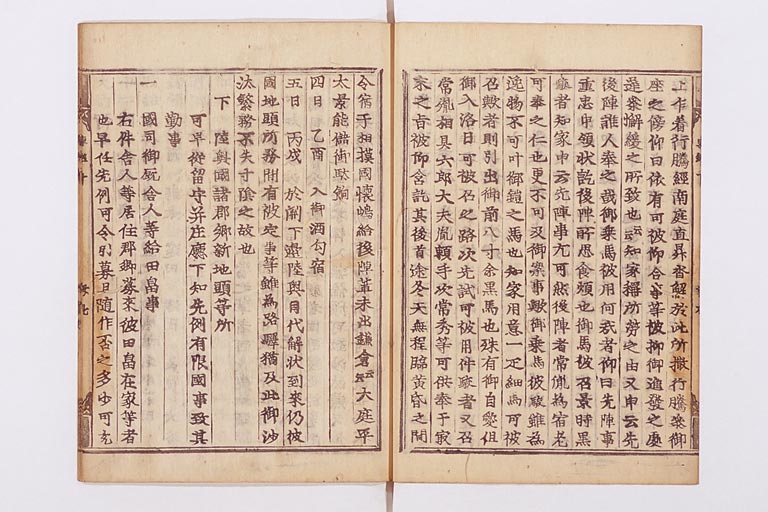 上下着行騰經南庭直昇沓解於此所撤行騰參御
座之傍仰曰依有可被仰合之事等被抑御進發之處
遲參懈緩之所致也云云知家稱所勞之由又申云先
後陣誰人奉之哉御乘馬被用何哉者仰曰先陣事
重忠申領狀訖後陣所思食煩也御馬被召景時黑
駮者知家申云先陣事尤可然後陣者常胤爲宿老
可奉之仁也更不可及御案事歟御乘馬彼駮雖爲
逸物不可叶御鎧之馬也知家用意一疋細馬可被
召歟者則引出御前八寸余黑馬也殊有御自愛但
御入洛日可被召之路次先試可被用件駮者又召
常胤相具六郎大夫胤頼平次常秀等可供奉于最
末之旨被仰含訖其後首途冬天無程臨黄昏之間
令宿于相摸國懷嶋給後陣輩未出鎌倉云云大庭平
太景能儲御駄餉
四日　乙酉　入御酒勾宿
五日　丙戌　於關下邊陸奥目代解狀到來仍彼
國地頭所務間有被定事等雖爲路驛猶及此御沙
汰繁務不失寸陰之故也
下　陸奥國諸郡郷新地頭等所
可早從留守并在廳下知先例有限國事致其
勤事
一　國司御厩舍人等給田畠事
右件舍人等居住郡郷募來彼田畠在家等者
也早任先例可令引募且隨作否之多少可充